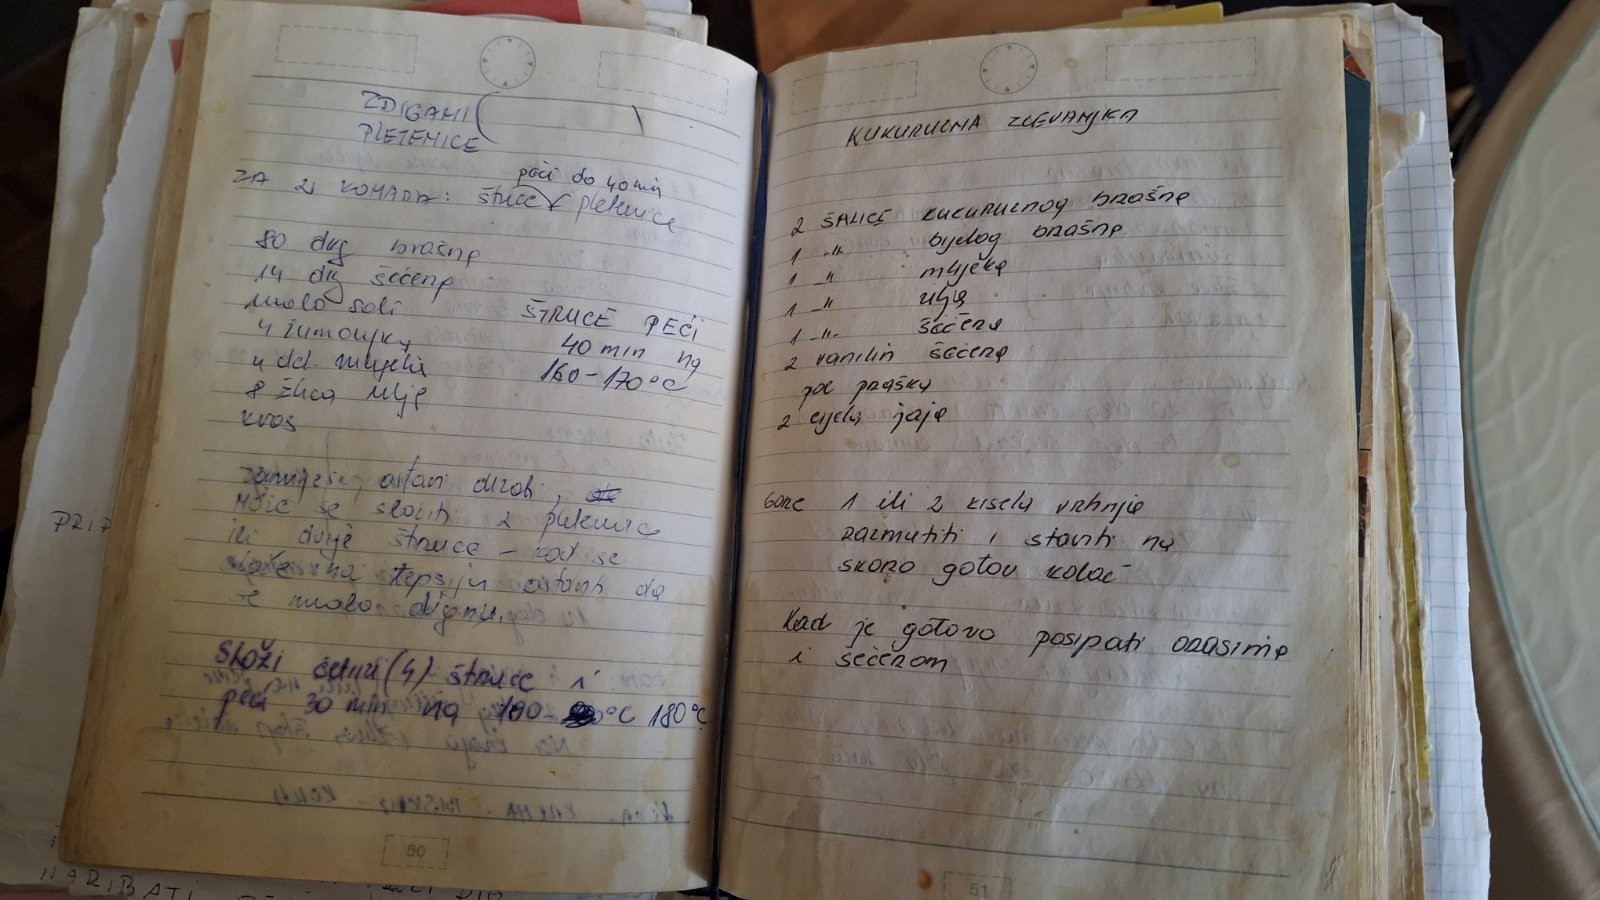 ZDIGAMI ( )
PLETENICE
peći do 40 min
ZA 2 KOMADA: štruce pletenice
80 dkg brašna
14 dkg šećera
malo soli
4 žumanjka
4 dcl. mlijeka
8 žlica ulja
kvas
ŠTRUCE PEĆI
40 min na
160-170°C
zamijesi, ostavi dizati,
Može se složiti 2 pletenice
ili dvije štruce - kad se
slože na tepsiju ostaviti da
se malo dignu.
Složi četiri (4) štruce i
peći 30 min na °C 180°C
50
KUKURUZNA ZLEVANJKA
2 ŠALICE kukuruznog brašna
1 -"- bijelog brašna
1 -"- mlijeka
1 -"- ulja
1 -"- šećera
2 vanilin šećera
pol praška
2 cijela jaja
Gore 1 ili 2 kisela vrhnja
razmutiti i staviti na
skoro gotov kolač
Kad je gotovo posipati orasima
i šećerom
51
PRIP
NARIBATI